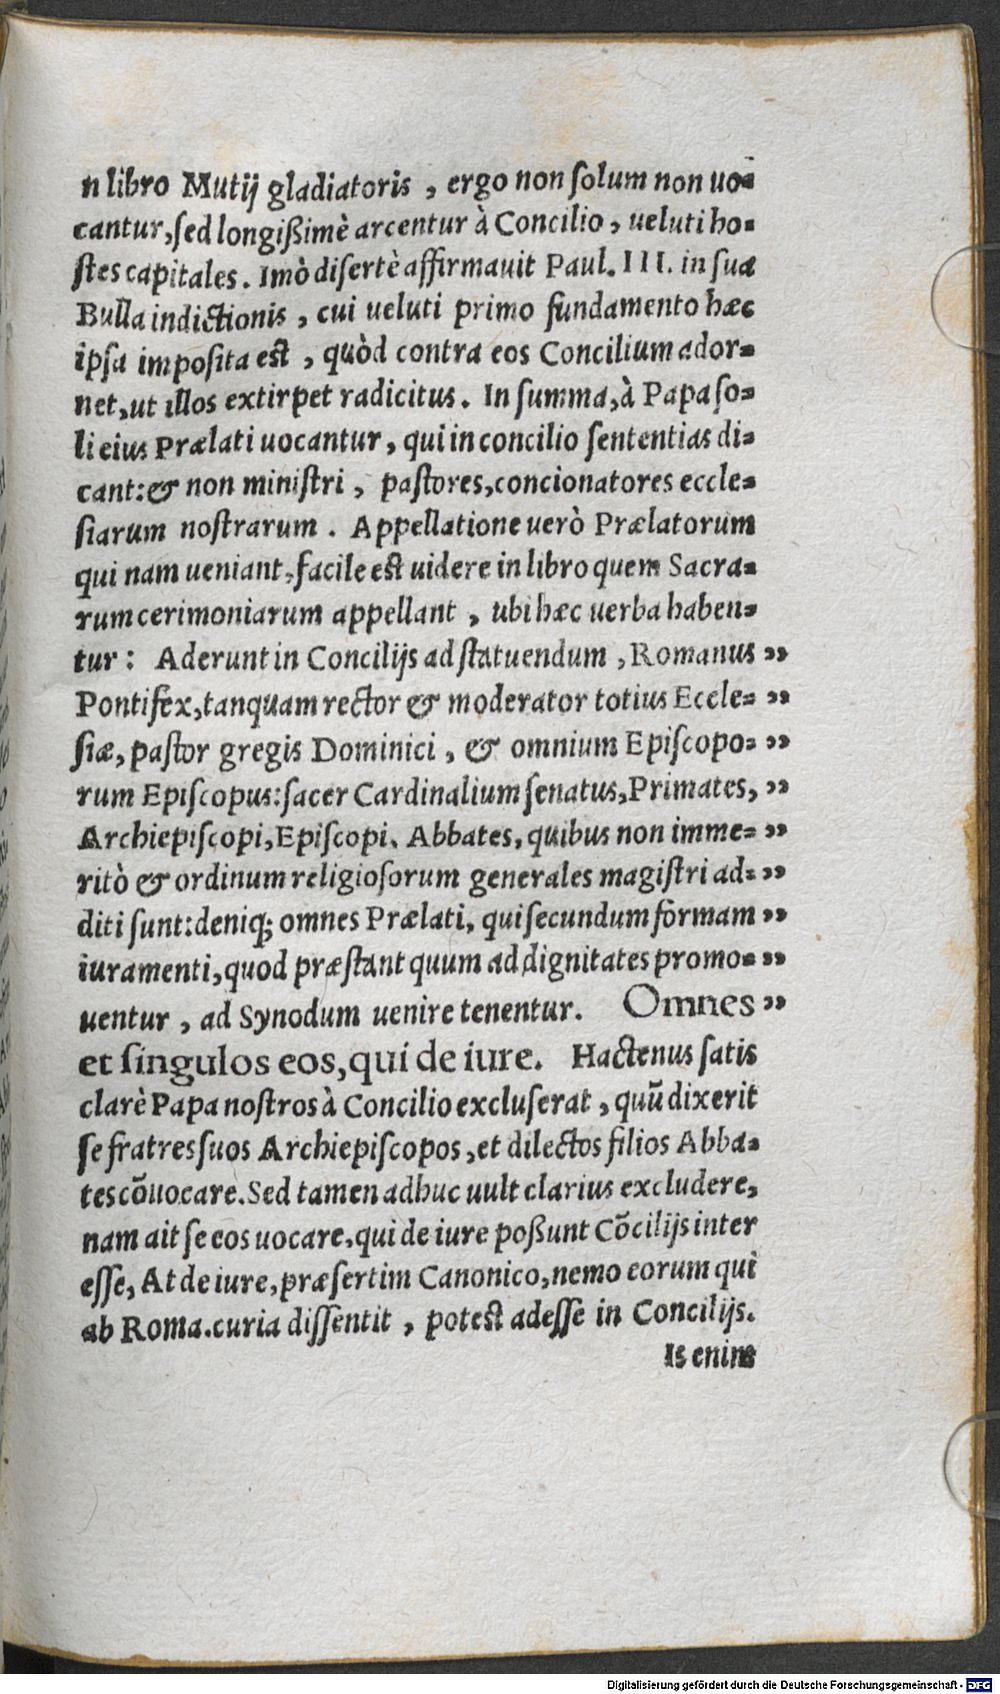 n libro Mutij gladiatoris, ergo non ſolum non uo-
cantur, ſed longißimè arcentur à Concilio, ueluti ho-
ſtes capitales. Imò diſertè affirmauit Paul. III. in ſua
Bulla indictionis, cui ueluti primo fundamento hæc
ipſa impoſita eſt, quòd contra eos Concilium ador-
net, ut illos extirpet radicitus. In ſumma, à Papa ſo-
li eius Prælati uocantur, qui in concilio ſententias di-
cant: & non miniſtri, paſtores, concionatores eccle-
ſiarum noſtrarum. Appellatione uerò Prælatorum
qui nam ueniant, facile eſt uidere in libro quem Sacra-
rum cerimoniarum appellant, ubi hæc uerba haben-
tur: Aderunt in Concilijs ad ſtatuendum, Romanus „
Pontifex, tanquam rector & moderator totius Eccle- „
ſiæ, paſtor gregis Dominici, & omnium Epiſcopo- „
rum Epiſcopus: ſacer Cardinalium ſenatus, Primates, „
Archiepiſcopi, Epiſcopi, Abbates, quibus non imme- „
ritò & ordinum religioſorum generales magiſtri ad- „
diti ſunt: deniq; omnes Prælati, qui ſecundum formam „
iuramenti, quod præſtant quum ad dignitates promo- „
uentur, ad Synodum uenire tenentur. Omnes „
et ſingulos eos, qui de iure. Hactenus ſatis
clarè Papa noſtros à Concilio excluſerat, quũ dixerit
ſe fratres ſuos Archiepiſcopos, et dilectos filios Abba-
tes cõuocare. Sed tamen adhuc uult clarius excludere,
nam ait ſe eos uocare, qui de iure poßunt Cõcilijs inter
eſſe, At de iure, præſertim Canonico, nemo eorum qui
ab Roma. curia diſſentit, poteſt adeſſe in Concilijs.
Is enim
Digitalisierung gefördert durch die Deutsche Forschungsgemeinschaft - DFG